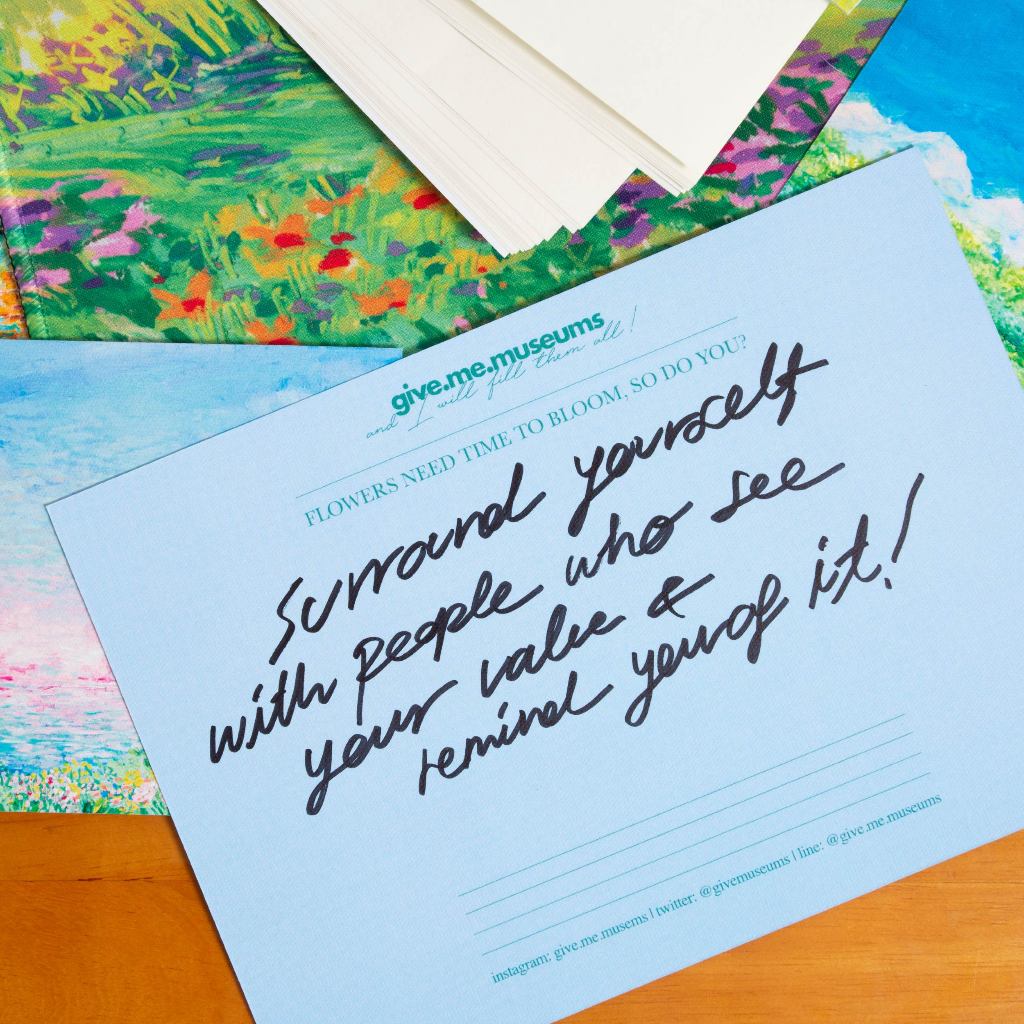 give.me.museums
and I will fill them all!
FLOWERS NEED TIME TO BLOOM, SO DO YOU?
Surround yourself
with people who see
your value &
remind you of it!
instagram: give.me.musems | twitter: @givemuseums | line: @give.me.museums